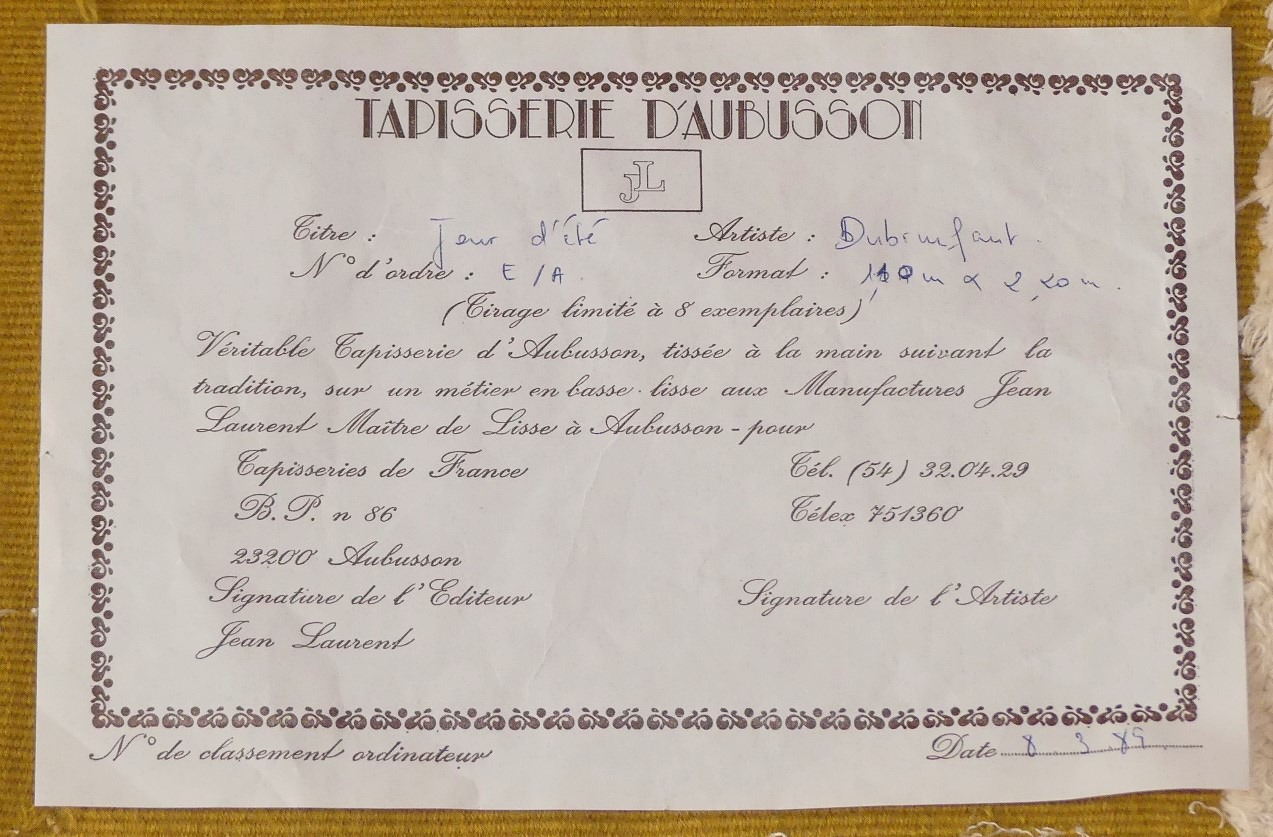 TAPISSERIE D'AUBUSSON
JL
Titre : Jour d'été Artiste : Dubrunfaut.
N° d'ordre : E/A. Format : x 2,20 m.
(Tirage limité à 8 exemplaires)
Véritable Tapisserie d'Aubusson, tissée à la main suivant la
tradition, sur un métier en basse-lisse aux Manufactures Jean
Laurent Maître de Lisse à Aubusson - pour
Tapisseries de France Tél. (54) 32.04.29
B.P. n 86 Télex 751360
23200 Aubusson
Signature de l'Editeur Signature de l'Artiste
Jean Laurent
N° de classement ordinateur Date 8 3 89